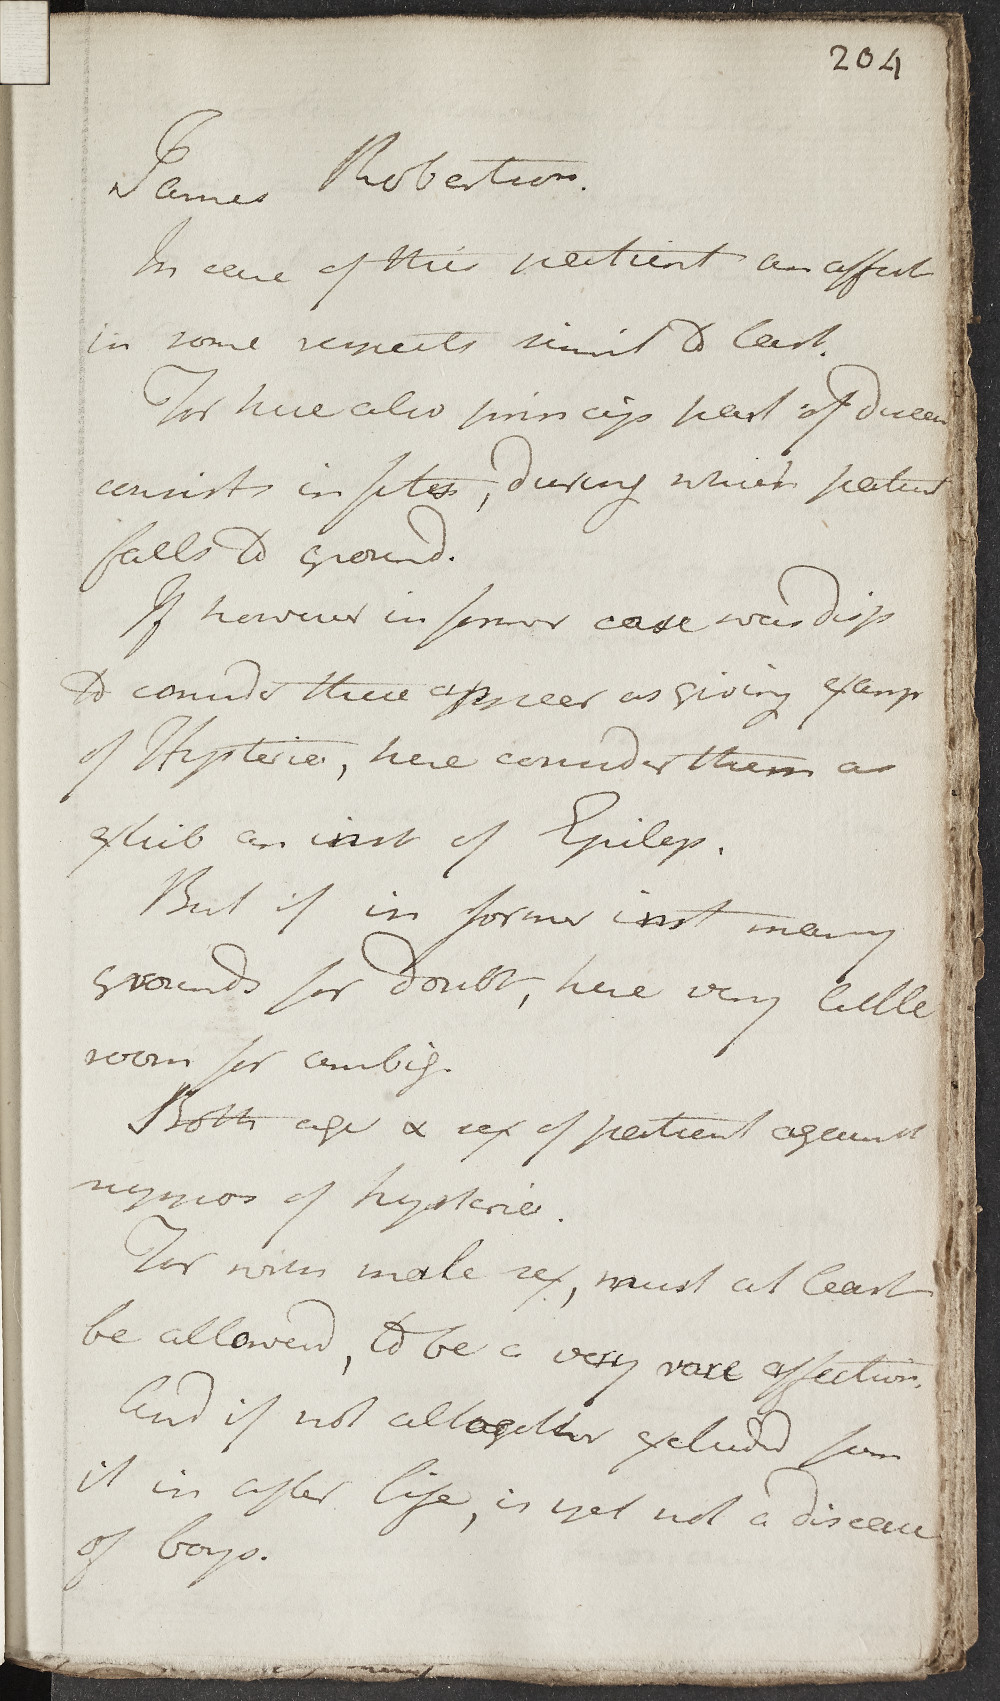 204
James Robertson.
In case of this patient an affect
in some respects simil to last.
For here also princip part of disease
consists in fits, during which patient
falls to ground.
If however in former case was disp
to consider these appear as giving examp
of Hysteria, here consider them as
exhib an inst of Epilep.
But if in former inst many
grounds for doubt, here very little
room for ambig.
Both age & sex of patient against
suppos of hysteria.
For with male sex, must at least
be allowed, to be a very rare affection.
And if not altogether excluded from
it in after life, is yet not a disease
of boys.